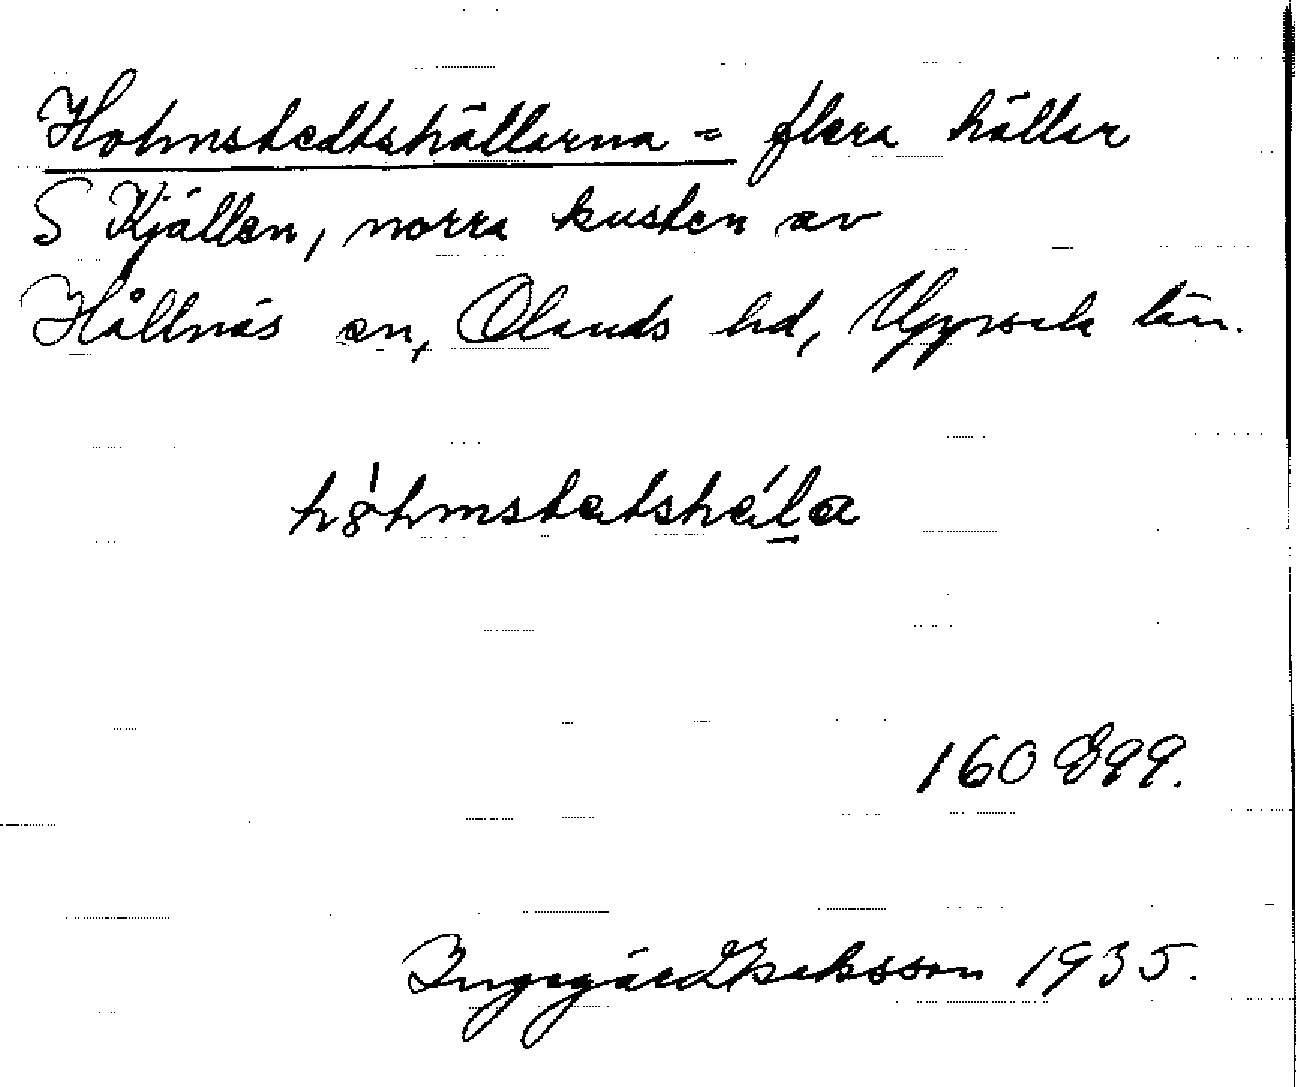 Holmstedtshällarna = flera hällar
S Kjällen, norra kusten av
Hållnäs sn, Olands hd, Uppsala län.
160 Egg.
Ingegärd Isaksson 1935.